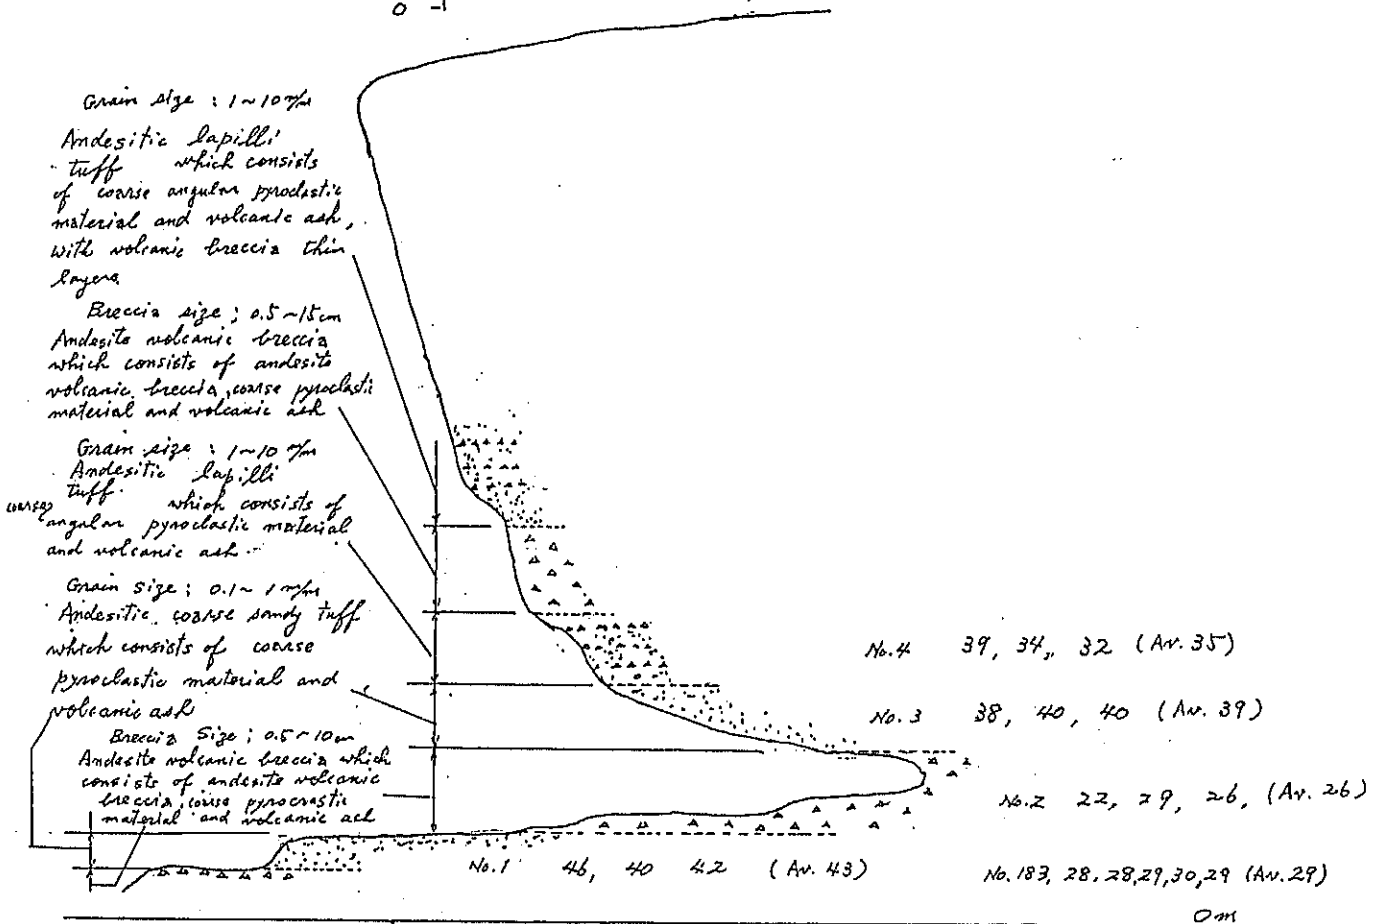 0 -1
Grain size : 1~10 m/m
Andesitic lapilli
tuff which consists
of coarse angular pyroclastic
material and volcanic ash,
with volcanic breccia thin
layers.
Breccia size ; 0.5~15cm
Andesite volcanic breccia
which consists of andesite
volcanic breccia, coarse pyroclastic
material and volcanic ash
Grain size : 1~10 m/m
Andesitic lapilli
tuff. which consists of
coarse angular pyroclastic material
and volcanic ash
Grain size ; 0.1~1 m/m
Andesitic coarse sandy tuff
which consists of coarse
pyroclastic material and
volcanic ash
Breccia Size ; 0.5~10cm
Andesite volcanic breccia which
consists of andesite volcanic
breccia, coarse pyrocrastic
material and volcanic ash
No.4 39, 34, 32 (Av. 35)
No.3 38, 40, 40 (Av. 39)
No.2 22, 29, 26, (Av. 26)
No.1 46, 40 42 (Av. 43)
No. 183, 28, 28, 29, 30, 29 (Av. 29)
0m